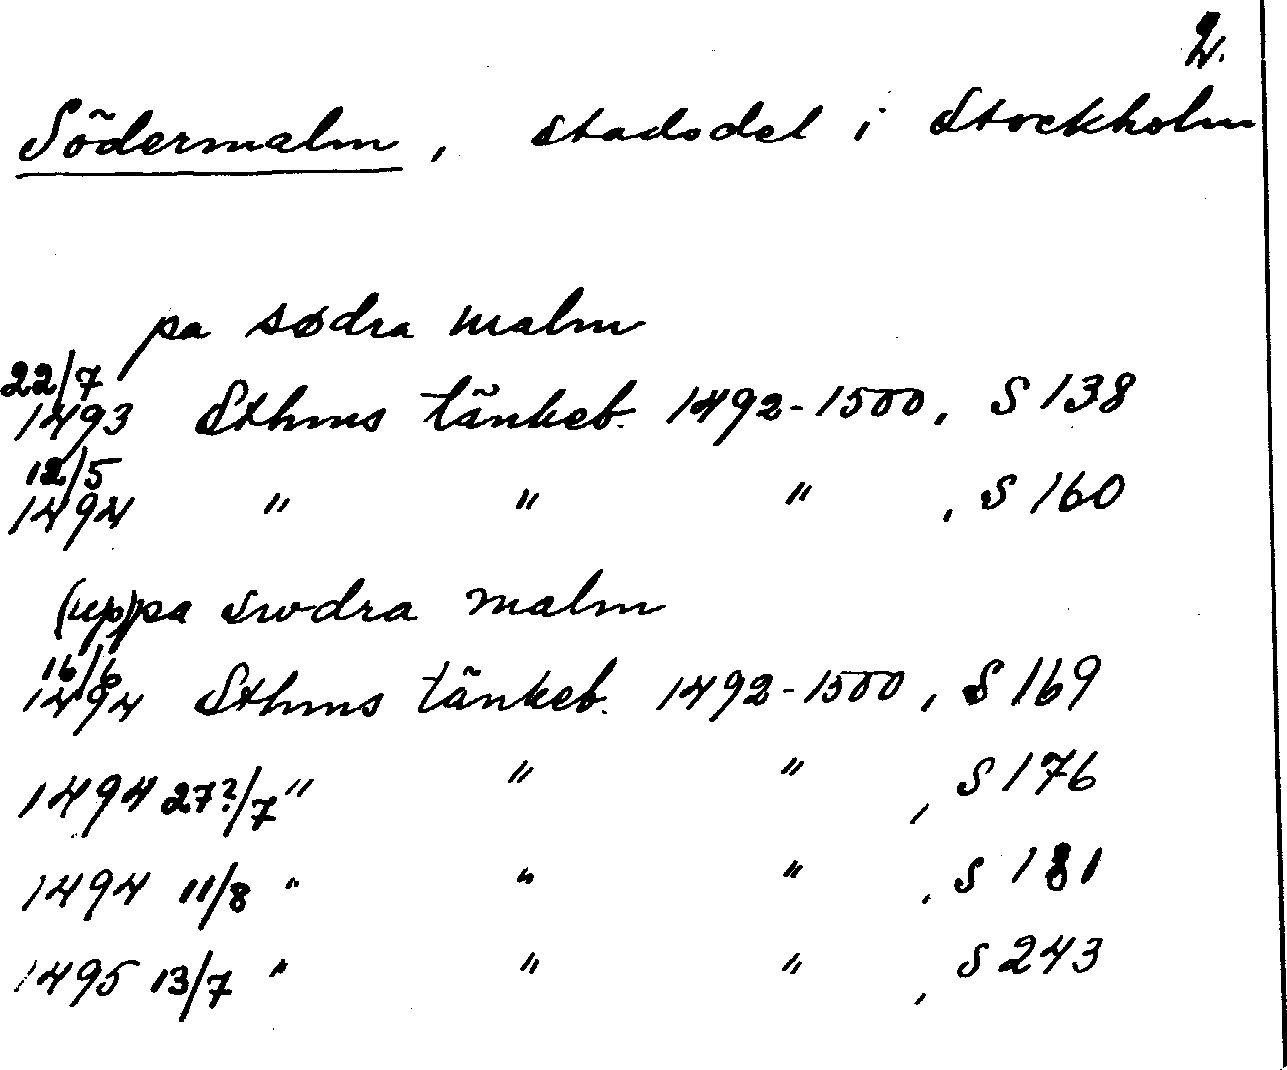 2.
Södermalm, stadsdel i Stockholm
pa sødra malm
22/7
1493 Sthms tänkeb. 1492-1500, S 138
12/5
1494 " " " , S 160
(up)pa swdra malm
16/6
1494 Sthms tänkeb. 1492-1500, S 169
1494 27?/7 " " " , S 176
1494 11/8 " " " , S 181
1495 13/7 " " " , S 243